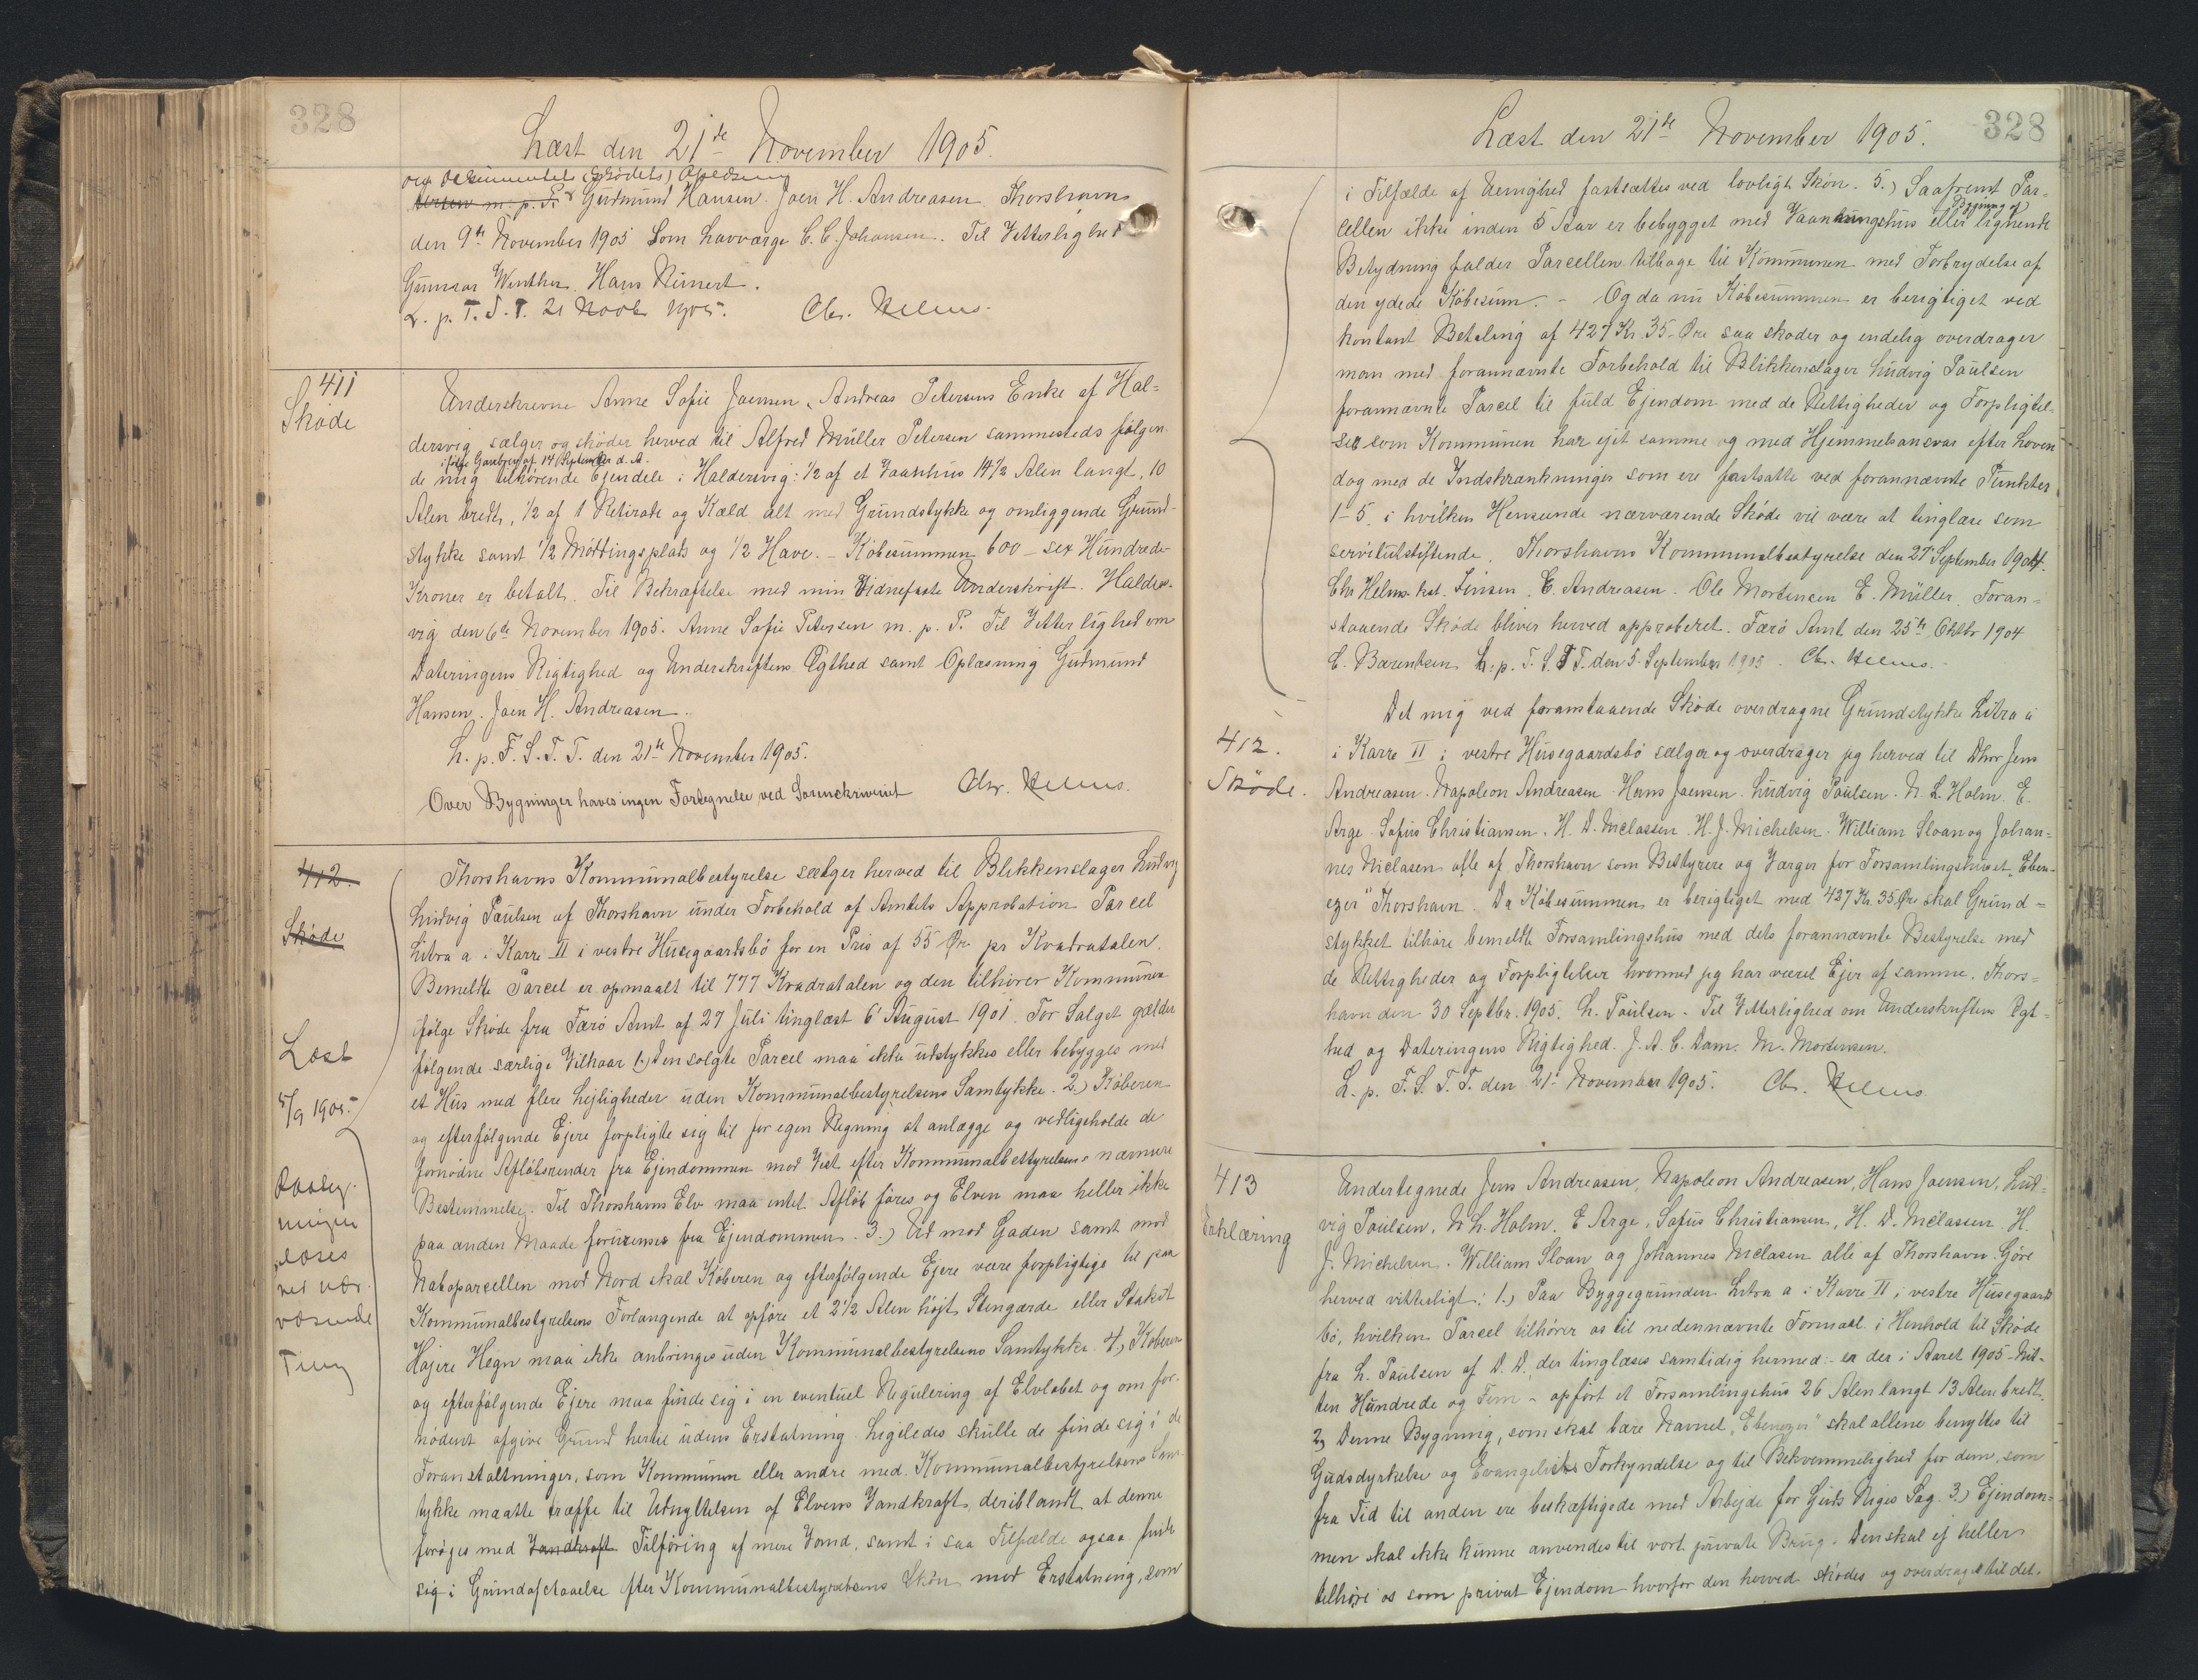 328
Læst den 21de November 1905.
og Dokumentets (Skødets) Oplæsning
Gudmund Hansen. Joen H. Andreasen. Thorshavn
den 9de November 1905 Som Lavværge C. C. Johansen. Til Vitterlighed
Gunnar Winther. Hans Reinert.
L. p. F. S. T. 21 Novbr 1905. Chr. Helms.
411
Skøde
Underskrevne Anne Sofie Joensen, Andreas Petersens Enke af Hal=
dersvig sælger og skøder herved til Alfred Müller Petersen sammesteds følgen
ifølge Gavebrev af 14 September d. A.
de mig tilhørende Ejendele i Haldersvig: 1/2 af et Vaanhus 14 1/2 Alen langt, 10
Alen bredt, 1/2 af 1 Retirade og Kæld alt med Grundstykke og omliggende Grund-
stykke samt 1/2 Møttingsplads og 1/2 Have. - Købesummen 600 - sex Hundrede
Kroner er betalt. Til Bekræftelse med min vidnefaste Underskrift. Halders-
vig den 6te November 1905. Anne Sofie Petersen m. p. P. Til Vitterlighed om
Dateringens Rigtighed og Underskriftens Ægthed samt Oplæsning Gudmund
Hansen. Joen H. Andreasen.
L. p. F. S. T. T. den 21de November 1905.
Over Bygninger haves ingen Fortegnelse ved Sorenskriveriet Chr. Helms.
412.
Skøde
Læst
5/9 1905.
Paateg-
ningen
læses
ved nær-
værende
Ting
Thorshavns Kommunalbestyrelse sælger herved til Blikkenslager Ludvig
Ludvig Paulsen af Thorshavn under Forbehold af Amtets Approbation Parcel
Litra a i Karre II i vestre Husegaardsbø for en Pris af 55 Øre pr Kvadratalen.
Bemeldte Parcel er opmaalt til 777 Kvadratalen og den tilhører Kommunen
ifølge Skøde fra Færø Amt af 27 Juli tinglæst 6 August 1901. For Salget gælder
følgende særlige Vilkaar 1.) Den solgte Parcel maa ikke udstykkes eller bebygges med
et Hus med flere Lejligheder uden Kommunalbestyrelsens Samtykke. 2.) Køberen
og efterfølgende Ejere forpligte sig til for egen Regning at anlægge og vedligeholde de
fornødne Afløbsrender fra Ejendommen mod Vest efter Kommunalbestyrelsens nærmere
Bestemmelse. Til Thorshavns Elv maa intet Afløb føres og Elven maa heller ikke
paa anden Maade forurenses fra Ejendommen. 3.) Ud mod Gaden samt mod
Naboparcellen mod Nord skal Køberen og efterfølgende Ejere være forpligtige til paa
Kommunalbestyrelsens Forlangende at opføre et 2 1/2 Alen højt Stengærde eller Stakit
Højere Hegn maa ikke anbringes uden Kommunalbestyrelsens Samtykke. 4.) Køberen
og efterfølgende Ejere maa finde sig i en eventuel Regulering af Elvløbet og om for-
nødent afgive Grund hertil uden Erstatning. Ligeledes skulle de finde sig i de
Foranstaltninger, som Kommunen eller andre med Kommunalbestyrelsens Sam-
tykke maatte træffe til Udnyttelsen af Elvens Vandkraft, deriblandt at denne
forøges med Vandkraft Tilføring af mere Vand, samt i saa Tilfælde ogsaa finde
sig i Grundafstaaelse efter Kommunalbestyrelsens Skøn mod Erstatning, som
328
Læst den 21de November 1905.
i Tilfælde af Uenighed fastsættes ved lovligt Skøn. 5.) Saafremt Par-
Bygning af
cellen ikke inden 5 Aar er bebygget med Vaaningshus eller lignende
Betydning falder Parcellen tilbage til Kommunen med Forbrydelse af
den ydede Købesum. - Og da nu Købesummen er berigtiget ved
kontant Betaling af 427 Kr. 35 Øre saa skøder og endelig overdrager
man med forannævnte Forbehold til Blikkenslager Ludvig Paulsen
forannævnte Parcel til fuld Ejendom med de Rettigheder og Forpligtel-
ser som Kommunen har ejet samme og med Hjemmelsansvar efter Loven
dog med de Indskrænkninger som ere fastsatte ved forannævnte Punkter
1-5. i hvilken Henseende nærværende Skøde vil være at tinglæse som
servitutstiftende. Thorshavns Kommunalbestyrelse den 27 September 1904.
Chr Helms kst. Jensen. E. Andreasen. Ole Mortensen E. Müller. Foran=
staaende Skøde bliver herved approberet. Færø Amt den 25de Oktbr 1904
C. Bærentsen L. p. F. S. T. T. den 5. September 1905. Chr. Helms.
412.
Skøde.
Det mig ved foranstaaende Skøde overdragne Grundstykke Litra a
i Karre II i vestre Husegaardsbø sælger og overdrager jeg herved til Dhrr Jens
Andreasen. Napoleon Andreasen. Hans Joensen. Ludvig Paulsen. N. L. Holm. E.
Arge. Sofus Christiansen. H. D. Niclassen. H. J. Michelsen. William Sloan og Johan=
nes Niclasen alle af Thorshavn som Bestyrere og Værger for Forsamlingshuset „Eben-
ezer" Thorshavn. Da Købesummen er berigtiget med 427 Kr. 35 Øre skal Grund=
stykket tilhøre bemeldte Forsamlingshus med dets forannævnte Bestyrelse med
de Rettigheder og Forpligtelser hvormed jeg har været Ejer af samme. Thors=
havn den 30 Septbr. 1905. L. Paulsen. Til Vitterlighed om Underskriftens Ægt=
hed og Dateringens Rigtighed. J. A. C. Dam. M. Mortensen.
L. p. F. S. T. T. den 21. November 1905. Chr. Helms.
413
Erklæring
Undertegnede Jens Andreasen, Napoleon Andreasen, Hans Joensen, Lud=
vig Paulsen, N. L. Holm. E Arge, Sofus Christiansen, H. D. Niclassen. H.
J. Michelsen. William Sloan og Johannes Niclasen alle af Thorshavn Gjøre
herved vitterligt: 1.) Paa Byggegrunden Litra a i Karre II i vestre Husegaards
bø, hvilken Parcel tilhører os til nedennævnte Formaal i Henhold til Skøde
fra L. Paulsen af D. D. der tinglæses samtidig hermed: - er der i Aaret 1905 - Nit-
ten Hundrede og Fem - opført et Forsamlingshus 26 Alen langt 13 Alen bredt.
2) Denne Bygning, som skal bære Navnet „Ebenezer" skal allene benyttes til
Gudsdyrkelse og Evangeliets Forkyndelse og til Bekvemmelighed for dem, som
fra Tid til anden ere beskæftigede med Arbejde for Guds Riges Sag. 3.) Ejendom=
men skal ikke kunne anvendes til vort private Brug. Den skal ej heller
tilhøre os som privat Ejendom hvorfor den herved skødes og overdrages til det.